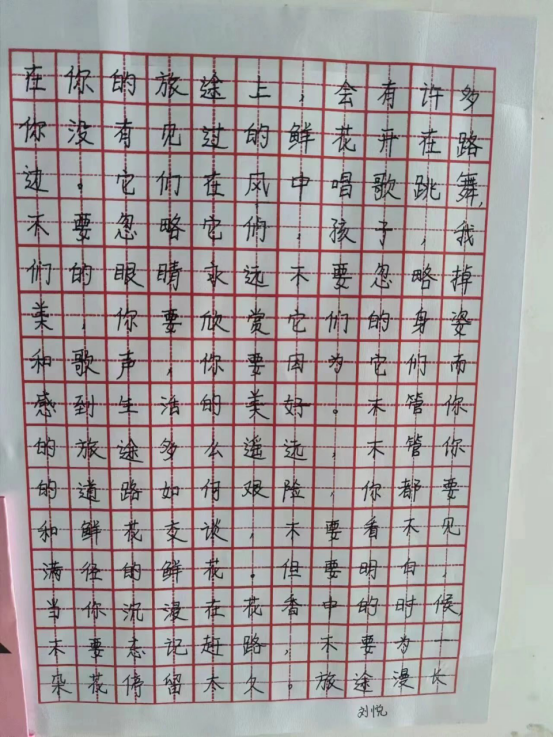 在你的旅途上，会有许多
你没有见过的鲜花开在路
边。它们在风中唱歌跳舞，
不要忽略它们，孩子，我
们的眼睛永远不要忽略掉
美，你要欣赏它们的身姿
和歌声，你要因为它们而
感到生活的美好。不管你
的旅途多么遥远，不管你
的道路如何艰险，你都要
和鲜花交谈，不要看不见
满径的鲜花。但要明白，
当你沉漫在花香中的时候，
不要忘记赶路，不要为一
朵花停留太久。旅途漫长
刘悦